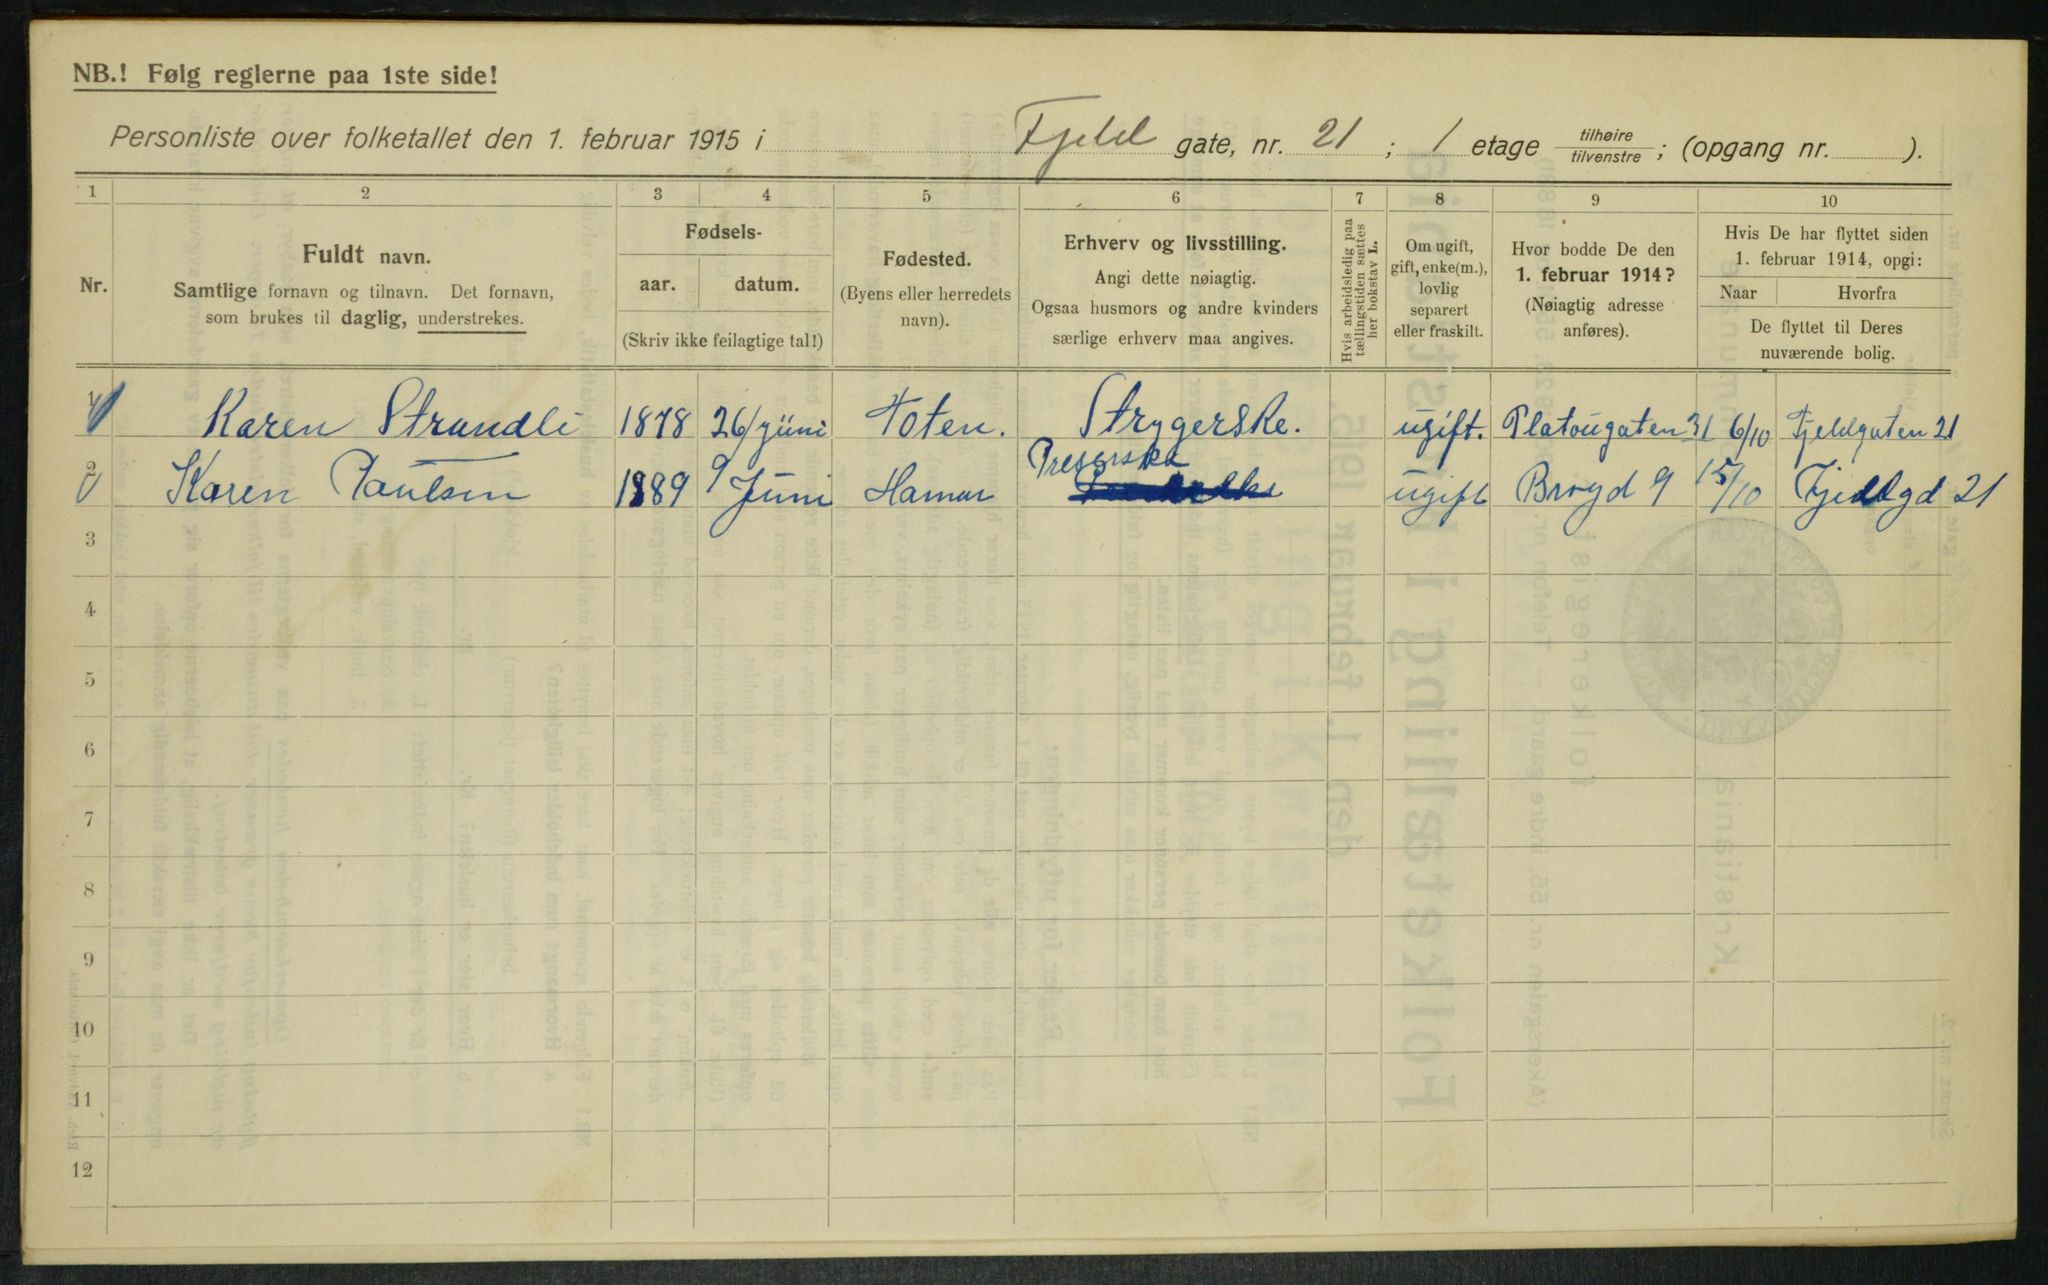 NB.! Følg reglerne paa 1ste side!
Personliste over folketallet den 1. februar 1915 i Fjeld gate, nr. 21 ; 1 etage tilhøire/tilvenstre ; (opgang nr. ).
1 2 3 4 5 6 7 8 9 10
Nr.
Fuldt navn.
Samtlige fornavn og tilnavn. Det fornavn,
som brukes til daglig, understrekes.
Fødsels-
aar. datum.
(Skriv ikke feilagtige tal!)
Fødested.
(Byens eller herredets
navn).
Erhverv og livsstilling.
Angi dette nøiagtig.
Ogsaa husmors og andre kvinders
særlige erhverv maa angives.
Hvis arbeidsledig paa
tællingstiden sættes
her bokstav L.
Om ugift,
gift, enke(m.),
lovlig
separert
eller fraskilt.
Hvor bodde De den
1. februar 1914?
(Nøiagtig adresse
anføres).
Hvis De har flyttet siden
1. februar 1914, opgi:
Naar Hvorfra
De flyttet til Deres
nuværende bolig.
1 Karen Strandli 1878 26/juni Toten. Strygerske. ugift. Platougaten 31 6/10 Fjeldgaten 21
2 Karen Paulsen 1889 9 Juni Hamar Preserska ugift Brogd 9 15/10 Fjeldgd 21
3
4
5
6
7
8
9
10
11
12